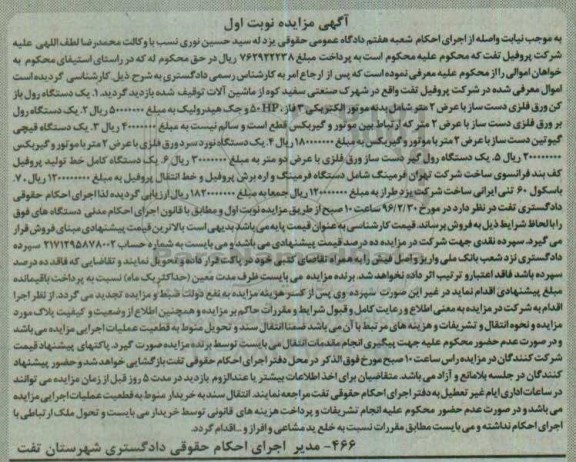 آگهی مزایده نوبت اول
به موجب نیابت واصله از اجرای احکام شعبه هفتم دادگاه عمومی حقوقی یزد له سید حسین نوری نسب با وکالت محمدرضا لطف اللهی علیه
شرکت پروفیل تفت که محکوم علیه محکوم است به پرداخت مبلغ ۷۶۲۹۲۲۲۳۸ ریال در حق محکوم له که در راستای استیفای محکوم به
خواهان اموالی را از محکوم علیه معرفی نموده است که پس از ارجاع امر به کارشناس رسمی دادگستری به شرح ذیل کارشناسی گردیده است
اموال معرفی شده در شرکت پروفیل تفت واقع در شهرک صنعتی سفید کوه از ماشین آلات توقیف شده بازدید گردید. ۱. یک دستگاه رول باز
کن ورق فلزی دست ساز با عرض ۲ متر شامل بدنه موتور الکتریکی ۳ فاز، ۵۰HP و جک هیدرولیک به مبلغ ۵۰۰۰۰۰۰۰ ریال ۲. یک دستگاه رول
بر ورق فلزی دست ساز با عرض ۲ متر که ارتباط بین موتور و گیربکس قطع است و سالم نیست به مبلغ ۴۰۰۰۰۰۰۰ ریال ۳. یک دستگاه قیچی
گیوتین دست ساز با عرض ۲ متر با موتور و گیربکس به مبلغ ۱۸۰۰۰۰۰۰۰ ریال ۴. یک دستگاه نورد سرد ورق فلزی با عرض ۲ متر با موتور و گیربکس
۲۰۰۰۰۰۰۰۰ ریال ۵. یک دستگاه رول گیر دست ساز ورق فلزی با عرض دو متر به مبلغ ۳۰۰۰۰۰۰۰ ریال ۶. یک دستگاه کامل خط تولید پروفیل
کف بند فرانسوی ساخت شرکت تهران فرمینگ شامل دستگاه فرمینگ و اره برش پروفیل و خط انتقال پروفیل به مبلغ ۱۲۰۰۰۰۰۰۰۰ ریال ۷.
باسکول ۶۰ تنی ایرانی ساخت شرکت یزد طراز به مبلغ ۱۲۰۰۰۰۰۰۰ ریال جمعا به مبلغ ۱۸۲۰۰۰۰۰۰۰ ریال ارزیابی گردیده لذا اجرای احکام حقوقی
دادگستری تفت در نظر دارد در مورخ ۹۶/۲/۳۰ ساعت ۱۰ صبح از طریق مزایده نوبت اول و مطابق با قانون اجرای احکام مدنی دستگاه های فوق
را با لحاظ شرایط ذیل به فروش برساند. قیمت کارشناسی به عنوان قیمت پایه می باشد بدیهی است بالاترین قیمت پیشنهادی مبنای فروش قرار
می گیرد. سپرده نقدی جهت شرکت در مزایده ده درصد قیمت پیشنهادی می باشد و می بایست به شماره حساب ۲۱۷۱۲۹۵۸۷۸۰۰۲ سپرده
دادگستری نزد شعب بانک ملی واریز و اصل فیش را به همراه تقاضای کتبی خود در پاکت قرار داده و تحویل نمایند و تقاضایی که فاقد ده درصد
سپرده باشد فاقد اعتبار و ترتیب اثر داده نخواهد شد. برنده مزایده می بایست ظرف مدت معین (حداکثر یک ماه) نسبت به پرداخت باقیمانده
مبلغ پیشنهادی اقدام نماید در غیر این صورت سپرده وی پس از کسر هزینه مزایده به نفع دولت ضبط و مزایده تجدید می گردد. از نظر اجرا
اقدام به شرکت در مزایده به معنی اطلاع و رعایت کامل و قبول شرایط و مقررات حاکم بر مزایده و همچنین اطلاع از وضعیت و کیفیت پلاک مورد
مزایده و نحوه انتقال و تشریفات و هزینه های مرتبط با آن می باشد ضمنا انتقال سند و تحویل منوط به قطعیت عملیات اجرایی مزایده می باشد
و در صورت عدم حضور محکوم علیه جهت پیگیری انجام مقدمات انتقال می بایست توسط برنده مزایده صورت گیرد. پاکتهای پیشنهاد قیمت
شرکت کنندگان در مزایده راس ساعت ۱۰ صبح مورخ فوق الذکر در محل دفتر اجرای احکام حقوقی تفت بازگشایی خواهد شد و حضور پیشنهاد
کنندگان در جلسه بلامانع و آزاد می باشد. متقاضیان برای اخذ اطلاعات بیشتر یا عندالزوم بازدید در مدت ۵ روز قبل از زمان مزایده می توانند
در ساعات اداری ایام غیر تعطیل به دفتر اجرای احکام حقوقی تفت مراجعه نمایند. انتقال سند به خریدار منوط به قطعیت عملیات اجرایی مزایده
می باشد و در صورت عدم حضور محکوم علیه انجام تشریفات و پرداخت هزینه های قانونی توسط خریدار می بایست و تحویل ملک ارتباطی با
اجرای احکام نداشته و می بایست مطابق مقررات نسبت به خلع ید مشاعی و افراز و ..اقدام گردد.
۴۶۶- مدیر اجرای احکام حقوقی دادگستری شهرستان تفت